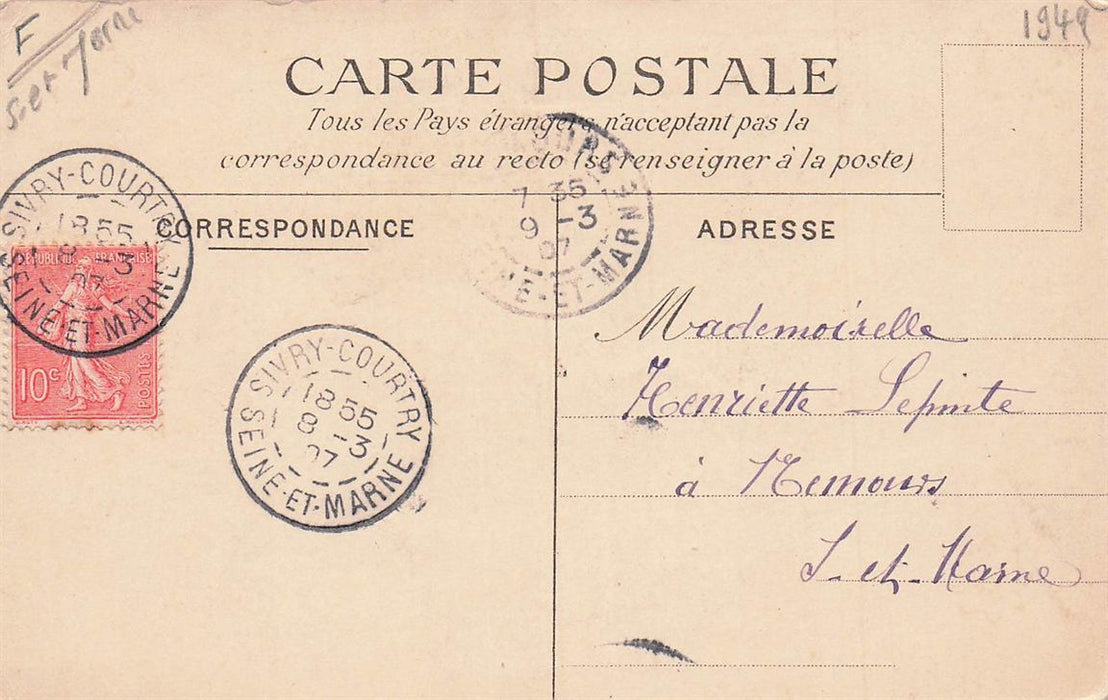 F
Set Marne
1949
CARTE POSTALE
Tous les Pays étrangers n'acceptant pas la
correspondance au recto (se renseigner à la poste)
CORRESPONDANCE
ADRESSE
SIVRY-COURTRY
18 55
8 -3
07
SEINE-ET-MARNE
REPUBLIQUE FRANÇAISE
10c
POSTES
SIVRY-COURTRY
18 55
8 -3
07
SEINE-ET-MARNE
7 35
9 -3
07
NE-ET-MARNE
Mademoiselle
Henriette Lepinte
à Nemours
S-et-Marne